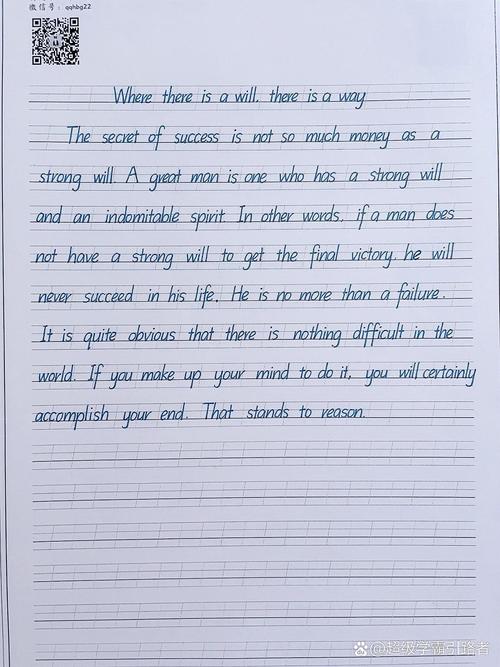 微信号：qqhbg22
Where there is a will, there is a way
The secret of success is not so much money as a
strong will. A great man is one who has a strong will
and an indomitable spirit. In other words, if a man does
not have a strong will to get the final victory, he will
never succeed in his life. He is no more than a failure.
It is quite obvious that there is nothing difficult in the
world. If you make up your mind to do it, you will certainly
accomplish your end. That stands to reason.
@超级学霸引路者